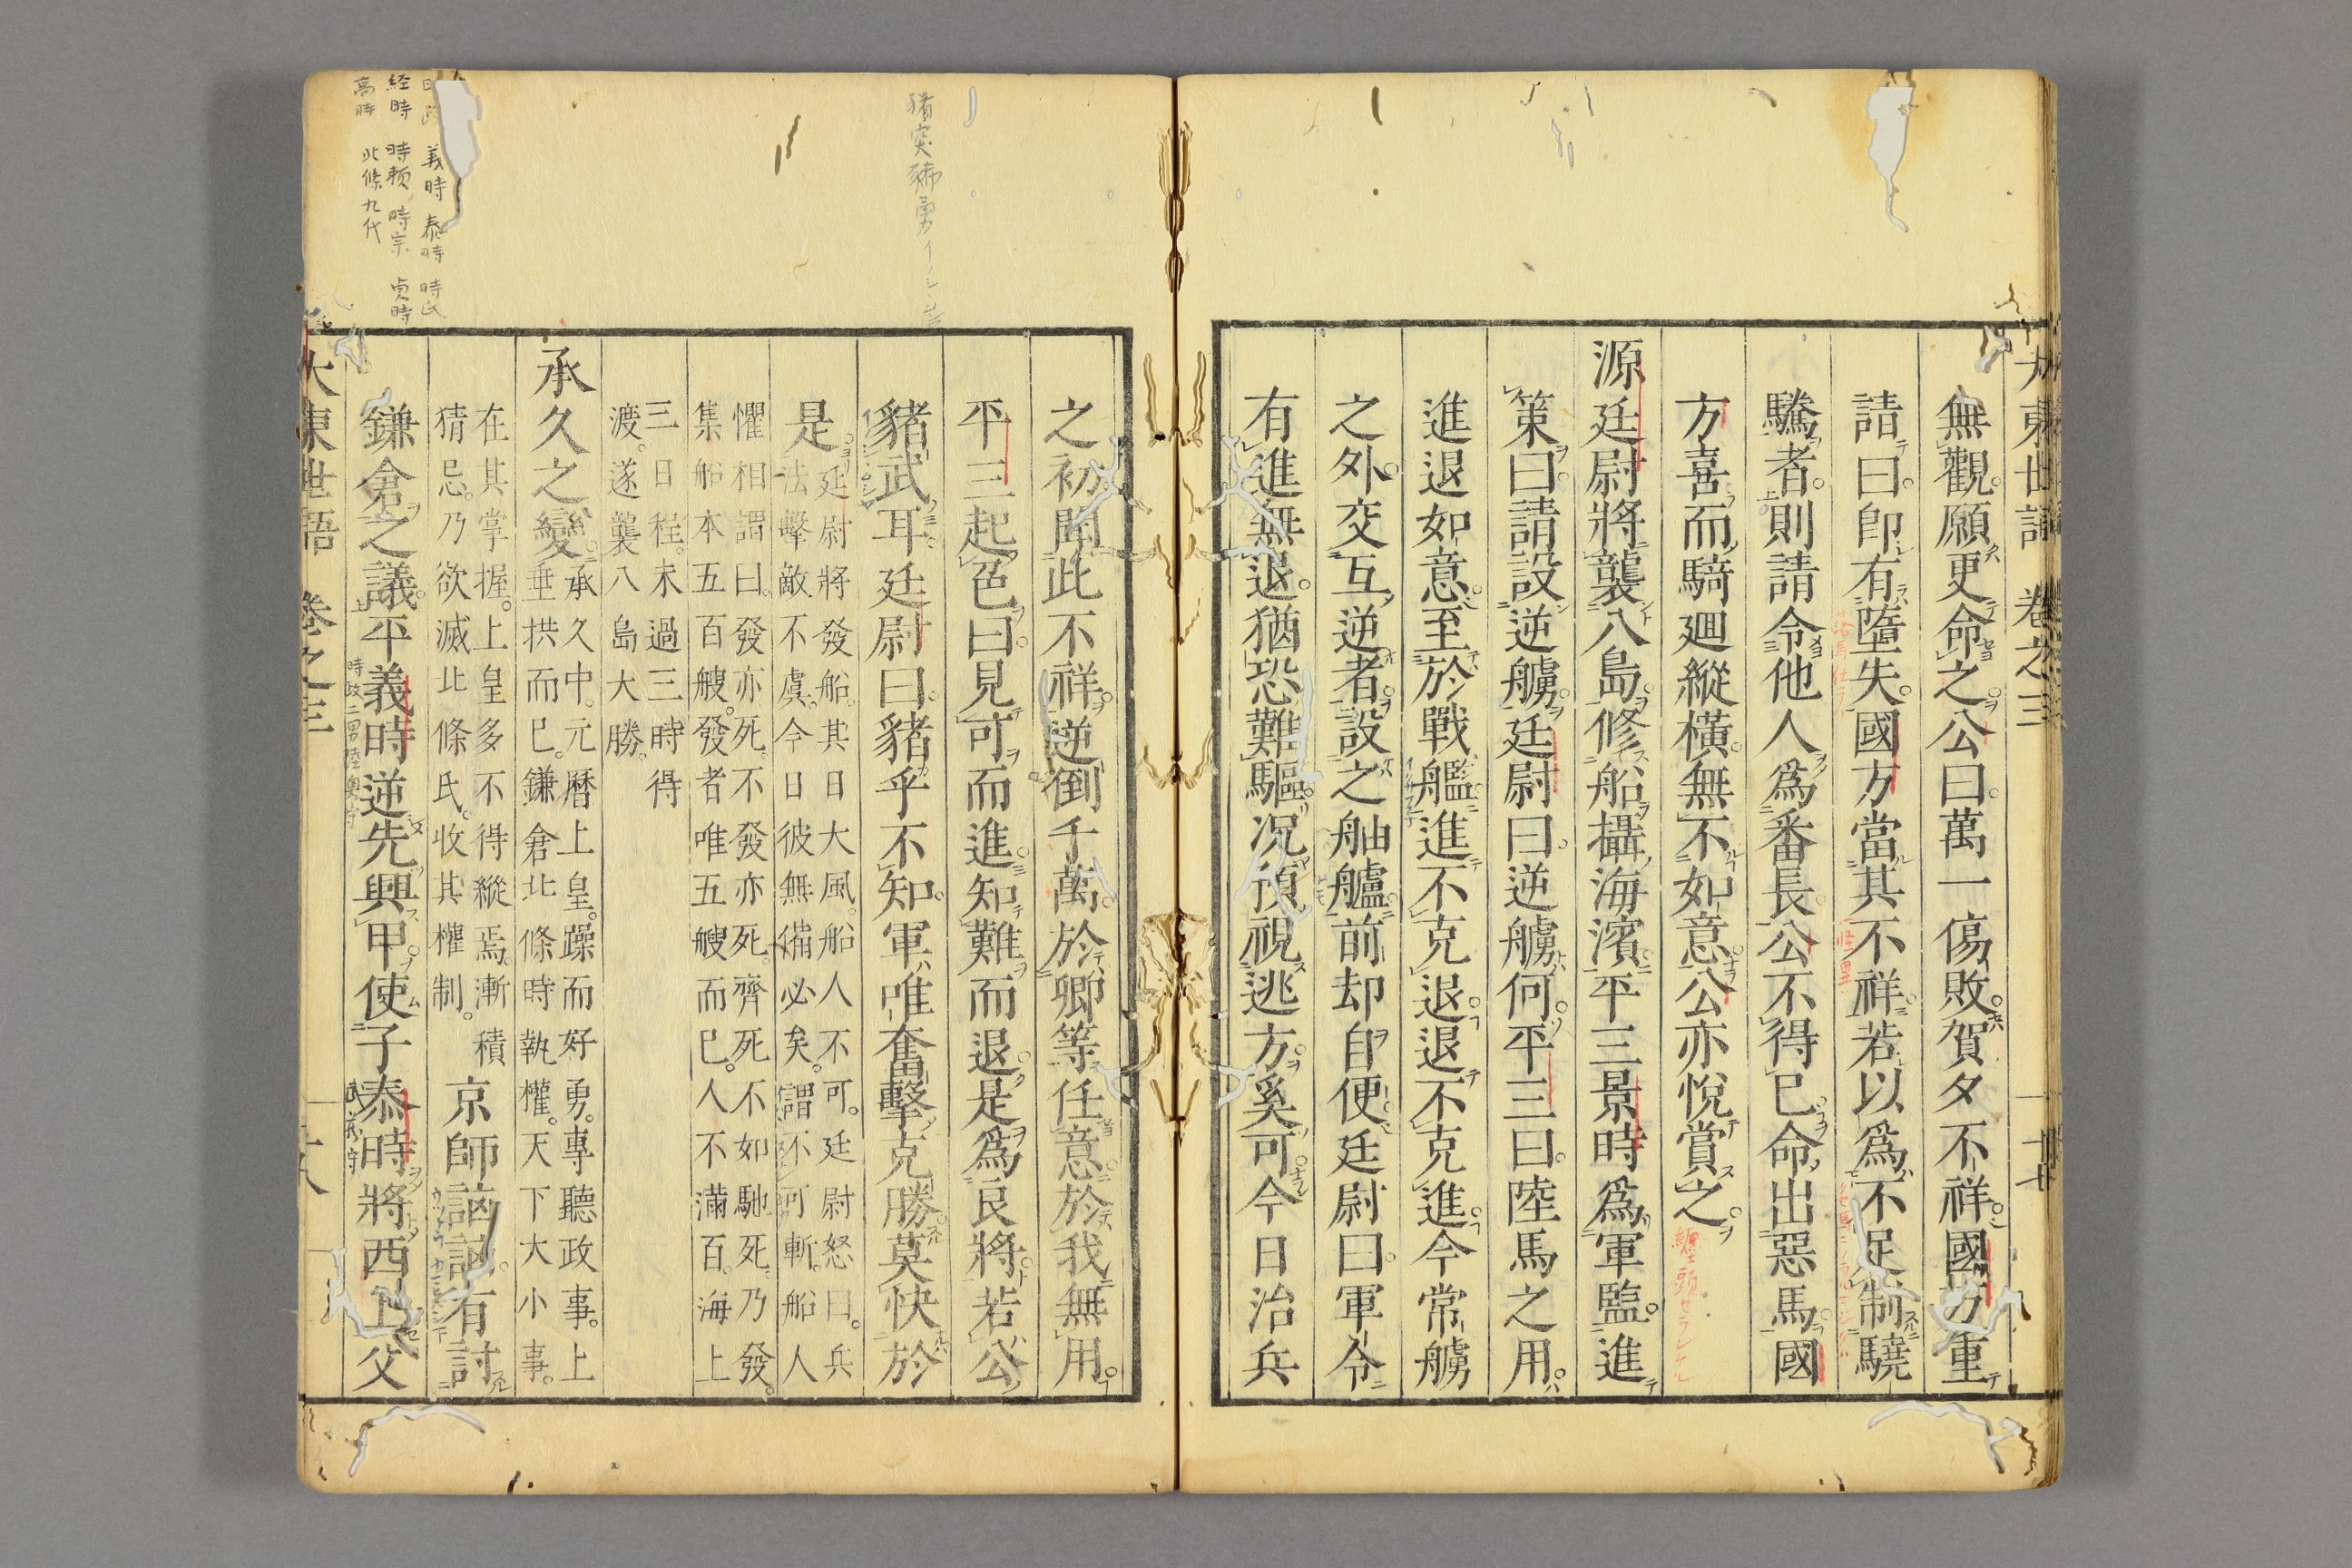 大東世語 卷之三 十七
無觀。願更命之。公曰。萬一傷敗。賀夕不祥。國方重
請曰。卽有墮失。國方當其不祥。若以爲不足制驍
驕者。則請令他人爲番長。公不得已。命出惡馬。國
方喜而騎廻縱橫。無不如意。公亦悅賞之。
源廷尉將襲八島。修船攝海濱。平三景時爲軍監。進
策曰。請設逆艣。廷尉曰。逆艣何。平三曰。陸馬之用。
進退如意。至於戰艦。進不克退。退不克進。今常艣
之外。交互逆者。設之舳艫。前却自便。廷尉曰。軍令
有進無退。猶恐難驅。況預視逃方。奚可。今日治兵
之初。聞此不祥。逆倒千萬。於卿等任意。於我無用。
平三起色曰。見可而進。知難而退。是爲良將。若公
豬武耳。廷尉曰。豬乎不知。軍唯奮擊克勝。莫快於
是。
廷尉將發船。其日大風。船人不可。廷尉怒曰。兵
法擊敵不虞。今日彼無備必矣。謂不可斬。船人
懼相謂曰。發亦死。不發亦死。齊死不如馳死。乃發。
集船本五百艘。發者唯五艘而已。人不滿百。海上
三日程。未過三時得
渡。遂襲八島大勝。
承久之變。
承久中。元曆上皇。躁而好勇。專聽政事。上
垂拱而已。鎌倉北條時執權。天下大小事。
在其掌握。上皇多不得縱焉。漸積
猜忌。乃欲滅北條氏。收其權制。
京師詾詾有討
鎌倉之議。平義時逆先興甲。使子泰時將西上。父
時政二男陸奧守
武藏守
大東世語 卷之三
豬突豨勇
義時 泰時 時氏
経時 時頼 時宗 貞時
高時 北條九代